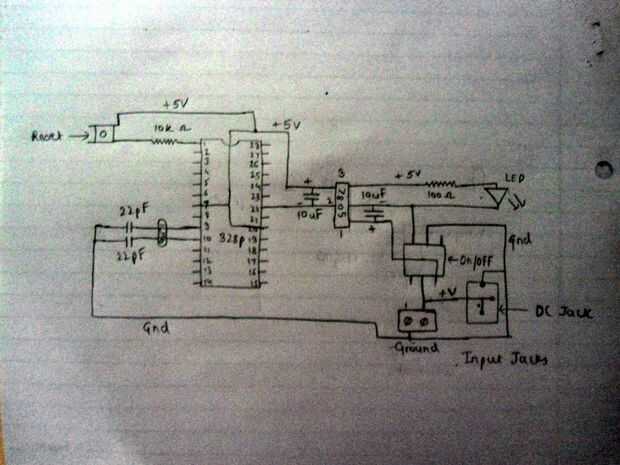 +5V
Reset
10k Ω
+5V
1 28
2 27
3 26
4 25
5 24
6 23
7 22
8 21
9 20
10 19
11 18
12 17
13 16
14 15
328p
22pF
22pF
Gnd
+ -
10uF
3
7805
2
1
10uF
+
+5V
100Ω
LED
Gnd
On/off
+V
DC Jack
Ground
Input Jacks